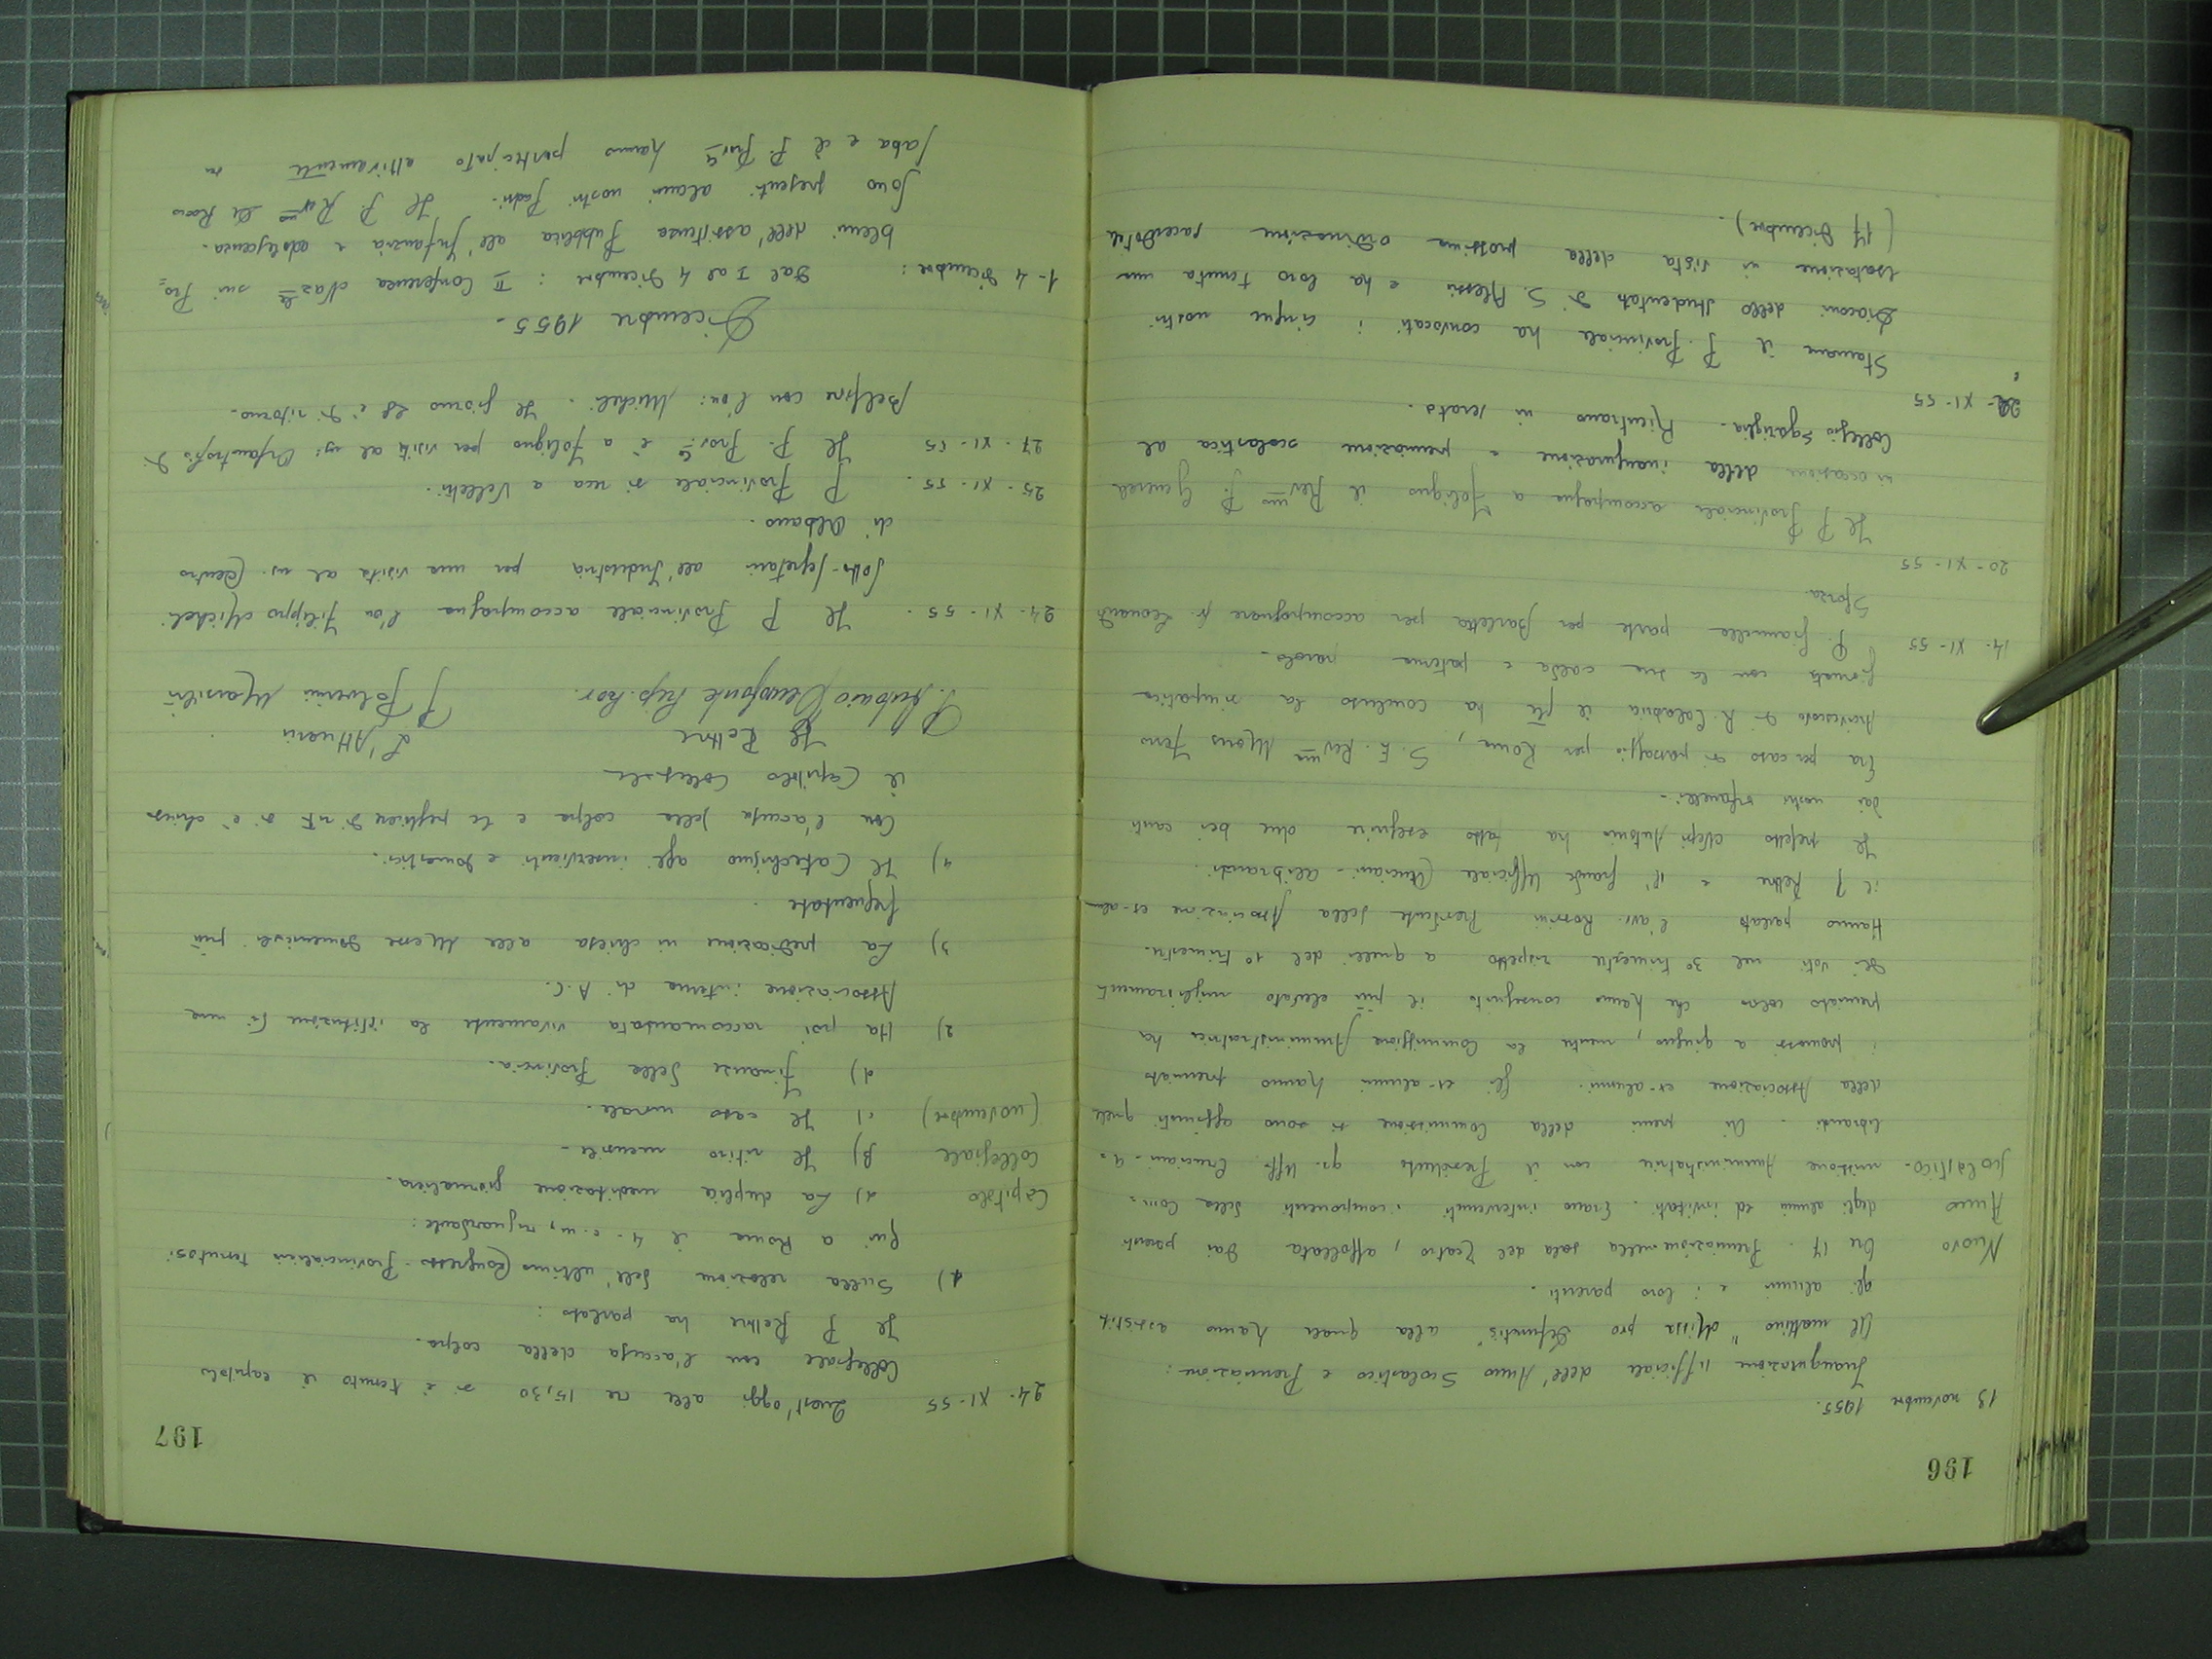 196
13 novembre 1955.
Inaugurazione ufficiale dell'Anno Scolastico e Premiazione:
Al mattino "Missa pro Defunctis" alla quale hanno assistito
gli alunni e i loro parenti.
Nuovo Ore 17. Premiazione nella sala del Teatro, affollata dai parenti
Anno degli alunni ed invitati. Erano intervenuti i componenti della Com=
scolastico. missione Amministratrice con il Presidente gr. Uff. Cruciani-A=
librandi. Ai premi della Commissione si sono aggiunti quelli
della Associazione ex-alunni. Gli ex-alunni hanno premiato
i promossi a giugno, mentre la Commissione Amministratrice ha
premiato coloro che hanno conseguito il più elevato miglioramento
di voti nel 3° trimestre rispetto a quelli del 1° trimestre.
Hanno parlato l'avv. Rossini Presidente della Associazione ex-alunni
il P Rettore e il grande Ufficiale Cruciani-Alibrandi.
Il prefetto Antonio ha fatto eseguire due bei canti
dai nostri orfanelli.-
Era per caso di passaggio per Roma, S. E. Rev.mo Mons Ferro
Arcivescovo di R. Calabria il qle ha concluso la simpatica
giornata con la sua calda e paterna parola.-
14. XI-55 P. parte per Barletta per accompagnare fr. Leonardo
Sforza
20-XI-55
Il P Provinciale accompagna a Foligno il Rev.mo P. Generale
in occasione della inaugurazione e premiazione scolastica al
Collegio Sgariglia. Rientrano in serata.
XI-55
Stamane il P. Provinciale ha convocati i cinque nostri
Diaconi dello studentato di S. Alessio e ha loro tenuta una
esortazione in vista della prossima ordinazione sacerdotale
(17 Dicembre).
197
24. XI-55 Quest'oggi alle ore 15,30 si è tenuto il capitolo
Collegiale con l'accusa della colpa.
Il P Rettore ha parlato:
1) Sulla relazione dell'ultimo Congresso Provincialicio tenutosi
qui a Roma il 4. c. m, riguardante:
Capitolo a) La duplice meditazione giornaliera.
Collegiale B) Il ritiro mensile-
(novembre) c) Il caso morale.
d) Finanze della Provincia.
2) Ha poi raccomandata vivamente la istituzione di una
Associazione interna di A.C.
3) La predicazione in chiesa alle Messe Domenicali più
frequentate.
4) Il Catechismo agli inservienti e domestici.
Con l'accusa della colpa e le preghiere di rito si è chiuso
il Capitolo Collegiale
Il Rettore L'Attuario
P. Antonio Prep. Prov. P Polverini Marsilio
24. XI-55. Il P Provinciale accompagna l'on Filippo Micheli
Sotto-Segretario all'Industria per una visita al ns. Centro
di Albano.
25. XI-55. P Provinciale si reca a Velletri.
27. XI-55 Il P. Prov.le è a Foligno per visita al ns. Orfanotrofio di
Belfiore con l'on: Micheli. Il giorno 28 è di ritorno.
Dicembre 1955.-
1-4 Dicembre: Dal I al 4 Dicembre: II Conferenza Naz.le sui Pro=
blemi dell'assistenza Pubblica all'Infanzia e adolescenza.
Sono presenti alcuni nostri Padri. Il P. Rev.mo De Rocco
Saba e il P. Prov.le hanno partecipato attivamente in